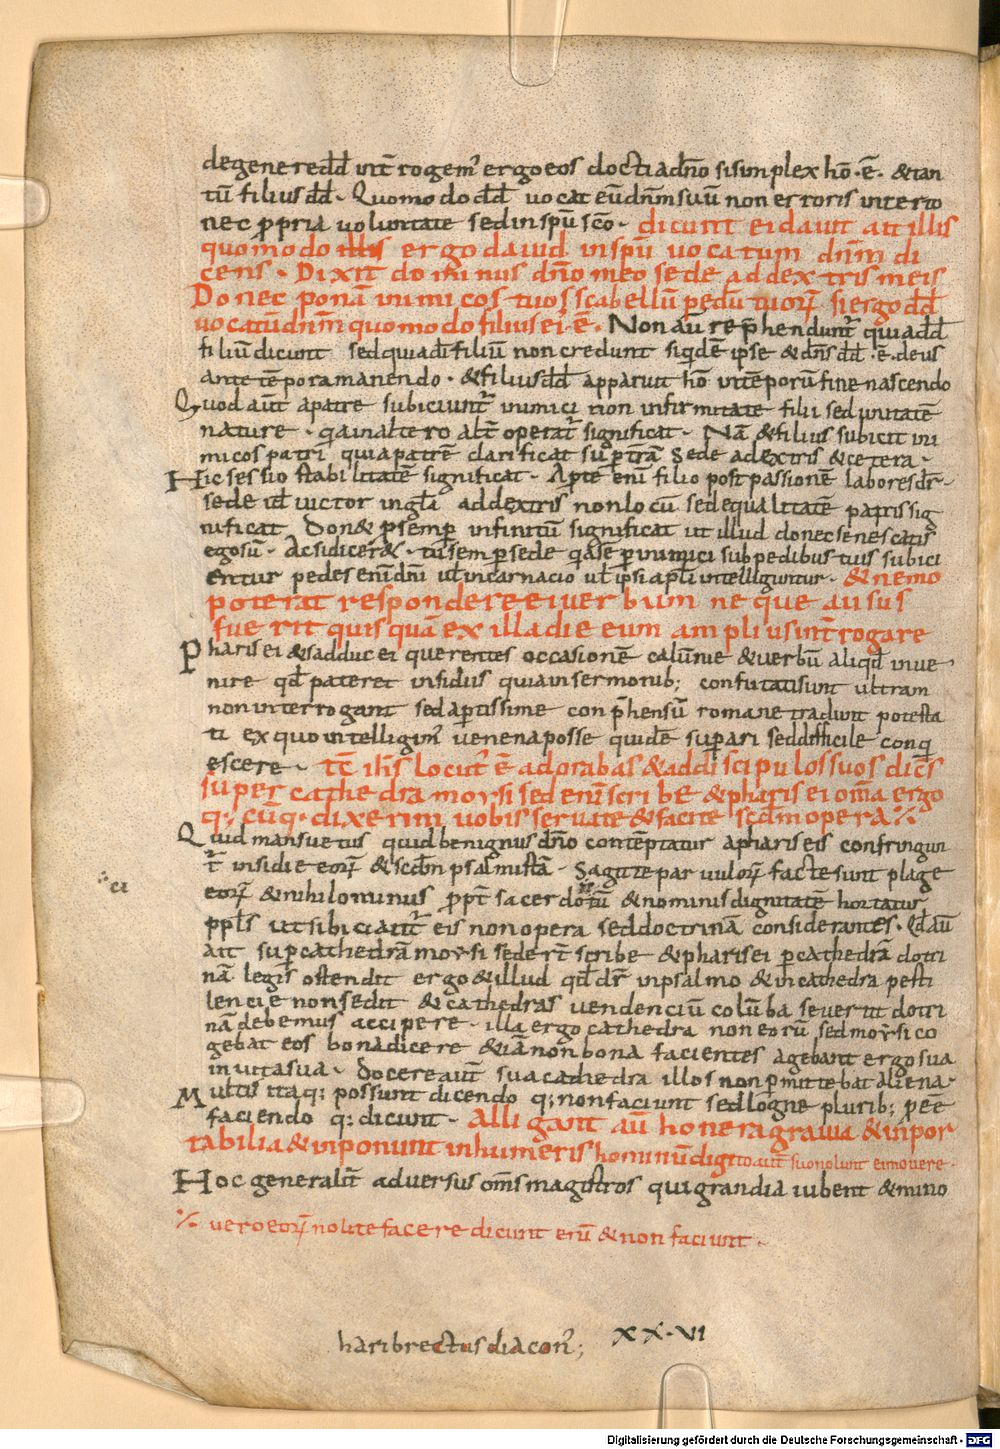 degeneredd̄ int̄rogem' ergo eos docti adn̄o si simplex hō · ē · & tan
tū filius dd̄ · Quomodo dd̄ uocat eū dn̄m suū non erroris interto
nec p̱pria uoluntate sed in sp̄u sc̄o · dicunt ei dauit ait illis
quomodo illis ergo dauid in sp̄u uocat um dn̄m di
cens · Dixit dominus dn̄o meo sede ad dextris meis
Donec ponā inimicos tuos scabellū pedū tuorꝝ si ergo dd̄
uocat ū dn̄m quomodo filius ei· ē · Non aū rep̄hendunt' quia dd̄
filiū dicunt sed quia dī filiū non credunt siqdē ipse & dn̄s dd̄ · ē · deus
ante tēpora manendo · & filius dd̄ apparuit hō in tēporū fine nascendo
Quod aūt a patre subiciunt' inimici non infirmitatē filii sed unitatē
nature · q̄a in altero alt̄ operat' significat · Nā & filius subicit ini
micos patri quia patrē clarificat sup̱ trā Sede ad extris & cetera ·
Hic sessio stabilitatē significat · Ap̱te enī filio post passionē labores dr̄ ·
sede ul̄ uictor in gl̄a ad dextris non locū sed equalitatē patris sig
nificat Don& p̱ semp̱ infinitū significat ut illud donec senescatis
ego sū · Ac si dicer& · tū semp̱ sede q̄ase p̱ inimici sub pedibus tuis subici
entur pedes enī dn̄i ul̄ incarnacio ul̄ ipsi apl̄i intelliguntur · & nemo
poterat respondere ei uerbum neque ausus
fuerit quisquā ex illa die eum amplius int̄rogare
Pharisei & sadducei querentes occasionē calūnie & uerbū aliqd̄ inue
nire qd̄ pateret insidiis quia in sermonib; confutati sunt ultram
non interrogant sed ap̱tissime conp̄hensū romane tradunt potesta
ti ex quo intelligim' uenena posse quidē sup̱ari sed difficile conq̱
escere · Tc̄ ih̄s locut' ē ad orabas & ad discipulos suos dic̄s
super cathedra moysi sed enī scribē & pharisei om̄a ergo
q; cūq · dixerint uobis seruate & facite scd̄m opera ·/·
Quid mansuetus quid benignus dn̄o contēptatur a phariseis confringun
t' insidie eorꝝ & scd̄m psalmistā · Sagitte paruulorꝝ facte sunt plage
eorꝝ & nihilominus p̱pt̄ sacerdotiū & nominis dignitatē hortatur
ppl̄s ut sibi ciant' eis non opera sed doctrinā considerantes · Qd̄ aū
ait sup̱ cathedrā moysi seder̄t scribe & pharisei p̱ cathedrā dotri
nā legis ostendit ergo & illud qd̄ dr̄ in psalmo & in cathedra pesti
lencie non sedit & cathedras uendenciū colūba seuer ut dotri
nā debemus accipere · illa ergo cathedra non eorū sed moysi co
gebat eos bona dicere & iā non bona facientes agebant ergo sua
in uita sua · Docere aūt sua cathedra illos non p̱mittebat aliena ·
Multis itaq; possunt dicendo q; non faciunt sed longe plurib; p̱ eē
faciendo q; dicunt · Alligant aū honera grauia & inpor
tabilia & inponunt in humeris hominū digito aut suo nolunt ei mouere ·
Hoc generalit̄ aduersus om̄s magistros qui grandia iubent & mino
·/· uero eorꝝ nolite facere dicunt enī & non faciunt ·
haribrectus diacon'; XX·VI